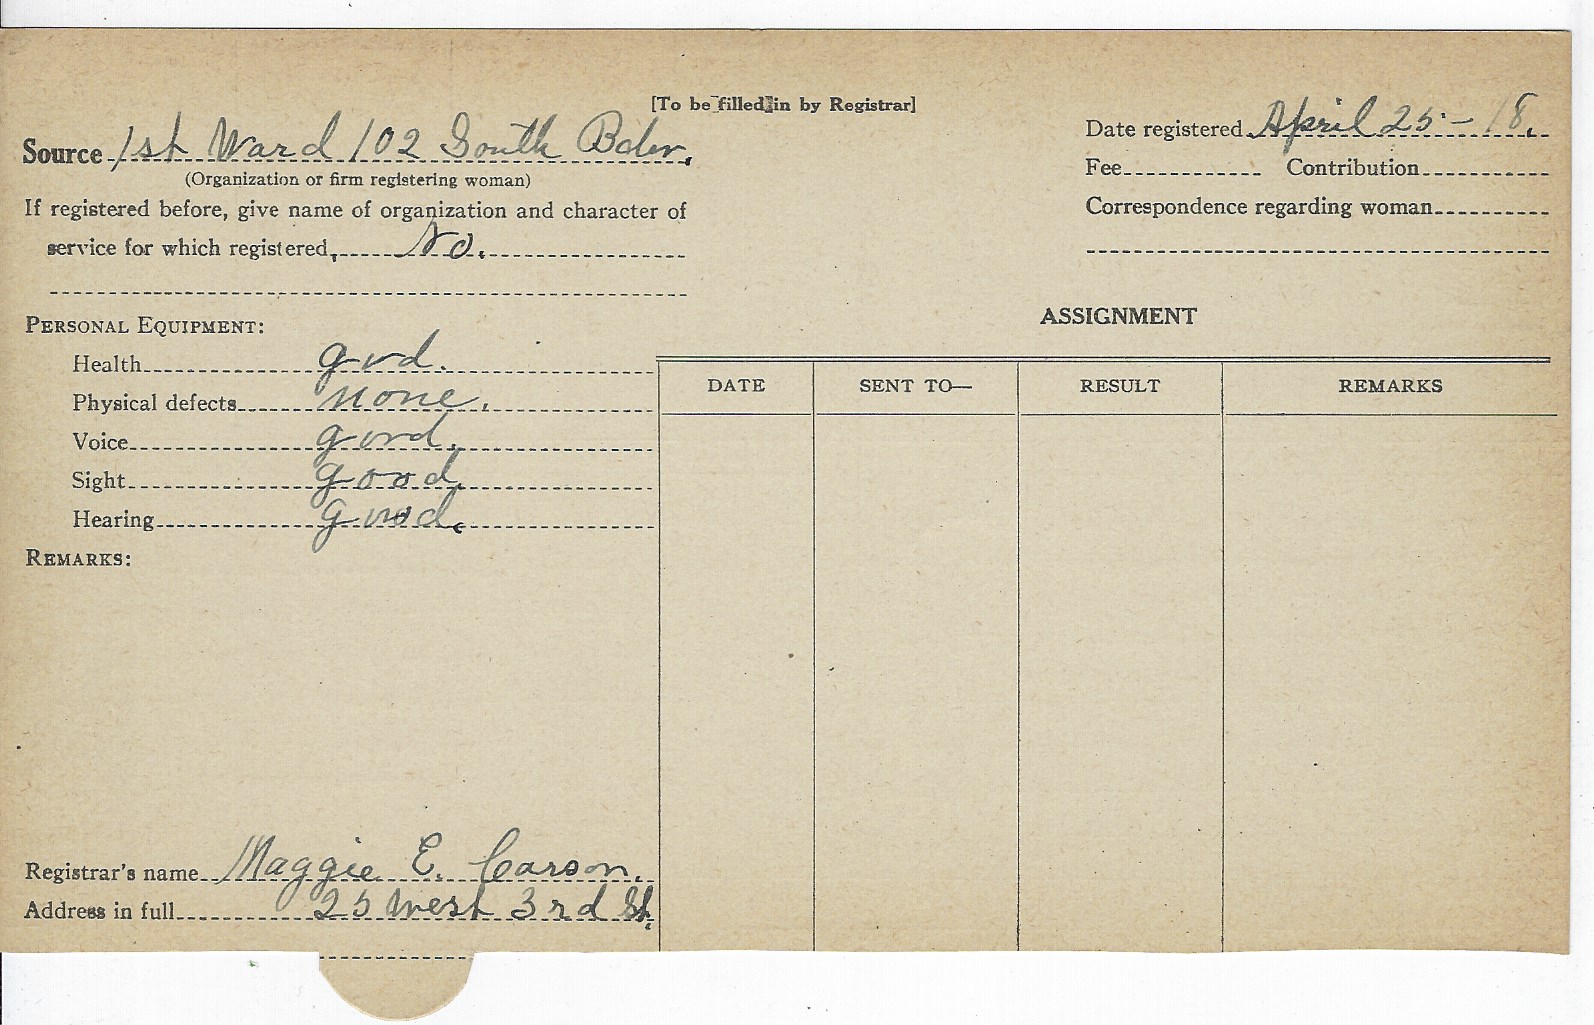 [To be filled in by Registrar]
Source 1st Ward 102 South
(Organization or firm registering woman)
If registered before, give name of organization and character of
service for which registered, No.
Date registered April 25 - 18.
Fee Contribution
Correspondence regarding woman
PERSONAL EQUIPMENT:
Health good.
Physical defects none.
Voice good.
Sight good.
Hearing good.
REMARKS:
Registrar's name Maggie E. Carson.
Address in full 25 West 3rd St.
ASSIGNMENT
DATE SENT TO— RESULT REMARKS